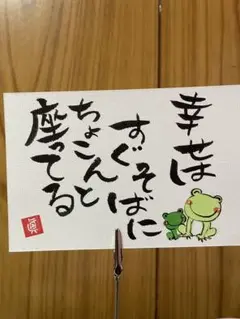 幸せは
すぐそばに
ちょこんと
座ってる